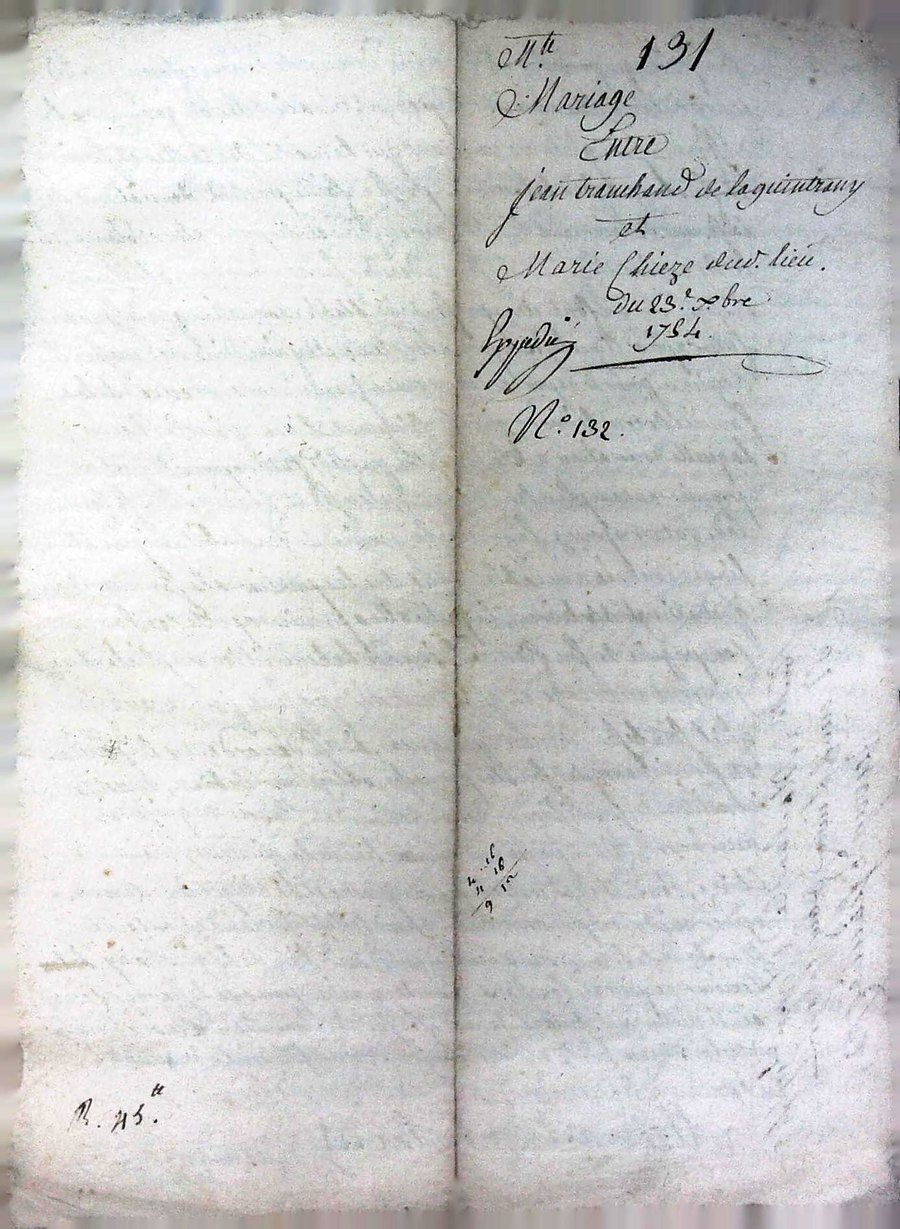 M.te 131
Mariage
Entre
jean tranchand de laquintrany
et
Marie Chieze dud. lieu.
du 23.e xbre
Expedié 1754.
N.o 132.
4.. 16
4 16
9 12
R. 45.tt